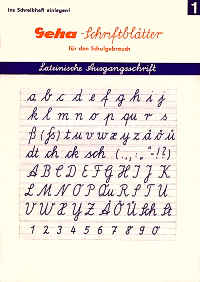 Ins Schreibheft einlegen!
1
Geha-Schriftblätter
für den Schulgebrauch
Lateinische Ausgangsschrift
a b c d e f g h i j
k l m n o p qu r s
ß (ſs) t u v w x y z ä ö ü
dt ch ck sch ( . , ; : „ “ - ! ? )
A B C D E F G H I J K
L M N O P Qu R S T U
V W X Y Z Ä Ö Ü Sch St
1 2 3 4 5 6 7 8 9 0